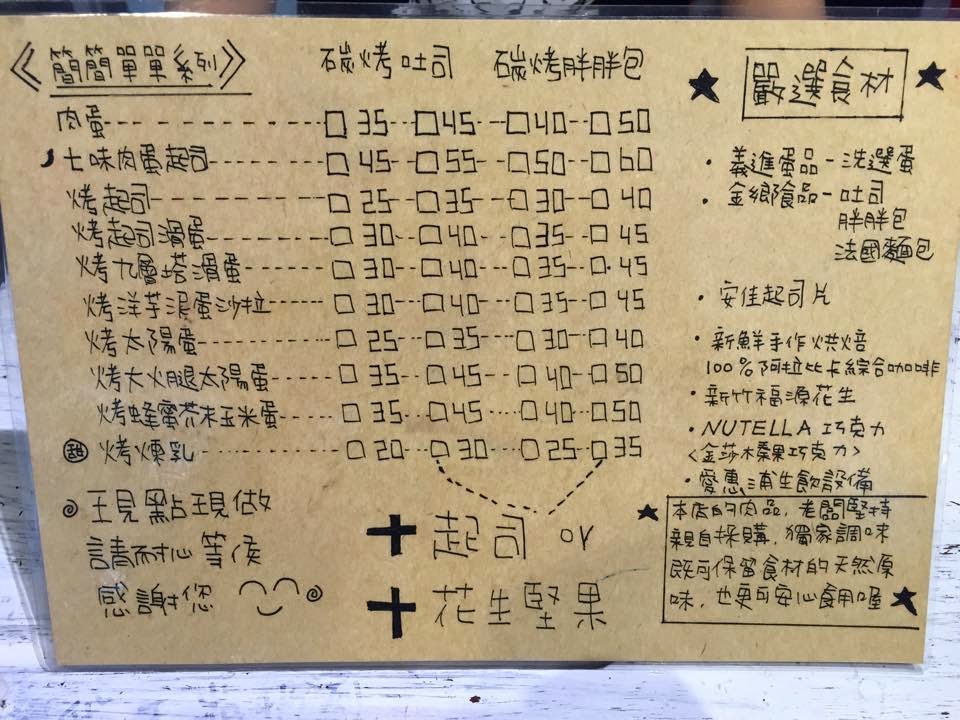 《簡簡單單系列》 碳烤吐司 碳烤胖胖包
肉蛋 □ 35 □ 45 □ 40 □ 50
七味肉蛋起司 □ 45 □ 55 □ 50 □ 60
烤起司 □ 25 □ 35 □ 30 □ 40
烤起司滑蛋 □ 30 □ 40 □ 35 □ 45
烤九層塔滑蛋 □ 30 □ 40 □ 35 □ 45
烤洋芋混蛋沙拉 □ 30 □ 40 □ 35 □ 45
烤太陽蛋 □ 25 □ 35 □ 30 □ 40
烤大火腿太陽蛋 □ 35 □ 45 □ 40 □ 50
烤蜂蜜芥末玉米蛋 □ 35 □ 45 □ 40 □ 50
甜 烤煉乳 □ 20 □ 30 □ 25 □ 35
+起司 or
+花生堅果
現點現做
請耐心等侯
感謝您
★ 嚴選食材 ★
・義進蛋品-洗選蛋
・金鄉食品-吐司
胖胖包
法國麵包
・安佳起司片
・新鮮手作烘焙
100%阿拉比卡綜合咖啡
・新竹福源花生
・NUTELLA 巧克力
<金莎榛果巧克力>
・愛惠浦生飲設備
★本店的肉品,老闆堅持
親自採購,獨家調味
既可保留食材的天然原
味,也更可安心食用喔★